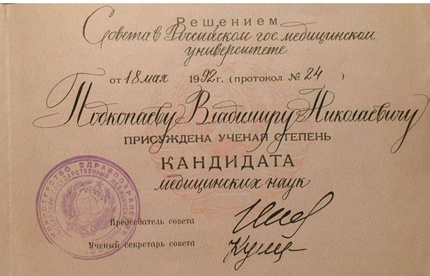 Решением
Совета в Российском гос. медицинском
университете
от 18 мая 1992 г. (протокол № 24)
Подкопаеву Владимиру Николаевичу
ПРИСУЖДЕНА УЧЕНАЯ СТЕПЕНЬ
КАНДИДАТА
медицинских наук
МИНИСТЕРСТВО ЗДРАВООХРАНЕНИЯ
Председатель совета
Ученый секретарь совета